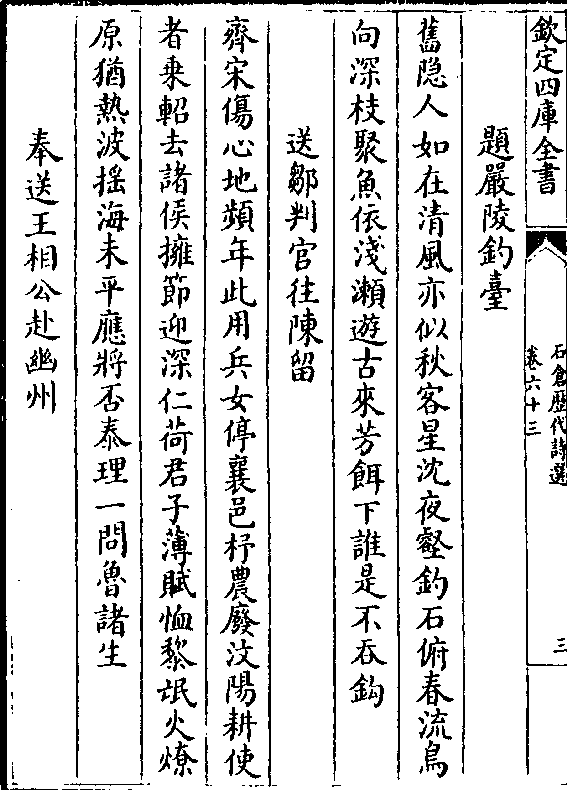 欽定四庫全書
石倉歴代詩選
卷六十三
三
題嚴陵釣臺
舊隐人如在清風亦似秋客星沈夜壑釣石俯春流鳥
向深枝聚魚依淺瀬遊古來芳餌下誰是不吞鈎
送鄒判官往陳留
齊宋傷心地頻年此用兵女停襄邑杼農廢汶陽耕使
者乗軺去諸侯擁節迎深仁荷君子薄賦恤黎氓火燎
原猶熱波揺海未平應將否泰理一問魯諸生
奉送王相公赴幽州